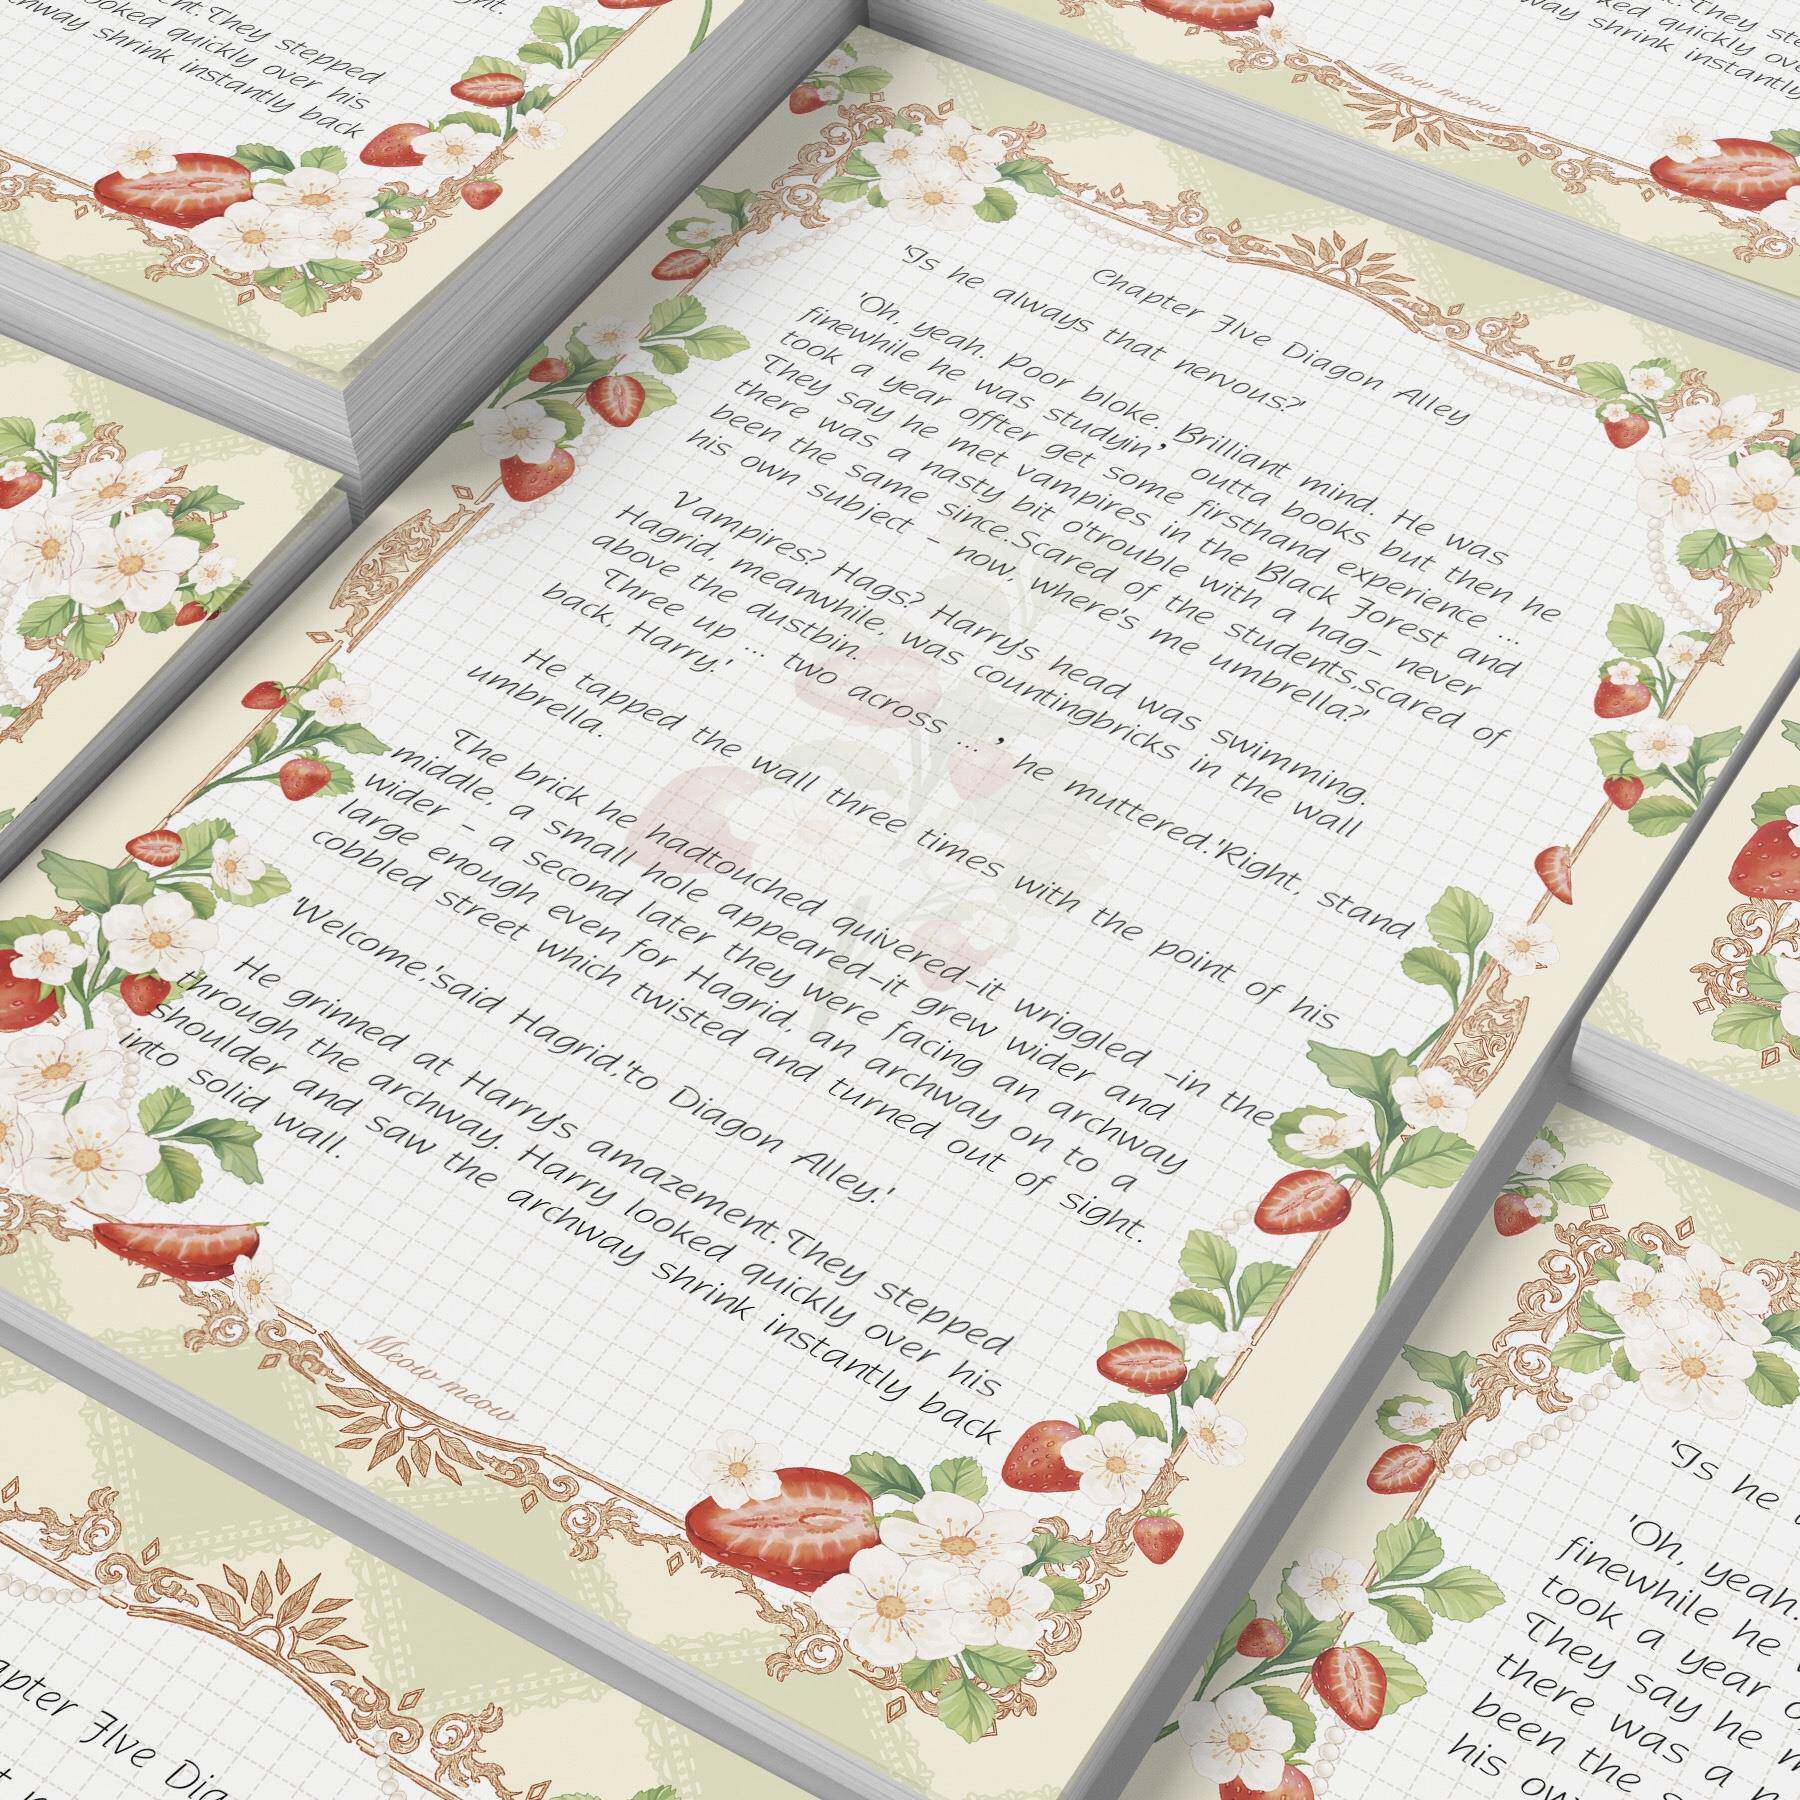 Chapter FIve Diagon Alley
'Is he always that nervous?'
'Oh, yeah. Poor bloke. Brilliant mind. He was
finewhile he was studyin' outta books but then he
took a year offter get some firsthand experience ...
They say he met vampires in the Black Forest and
there was a nasty bit o'trouble with a hag– never
been the same since.Scared of the students,scared of
his own subject – now, where's me umbrella?'
Vampires? Hags? Harry's head was swimming.
Hagrid, meanwhile, was countingbricks in the wall
above the dustbin.
Three up ... two across ... ' he muttered.'Right, stand
back, Harry.'
He tapped the wall three times with the point of his
umbrella.
The brick he hadtouched quivered–it wriggled –in the
middle, a small hole appeared–it grew wider and
wider – a second later they were facing an archway
large enough even for Hagrid, an archway on to a
cobbled street which twisted and turned out of sight.
'Welcome,'said Hagrid,'to Diagon Alley.'
He grinned at Harry's amazement.They stepped
through the archway. Harry looked quickly over his
shoulder and saw the archway shrink instantly back
into solid wall.
Meow meow